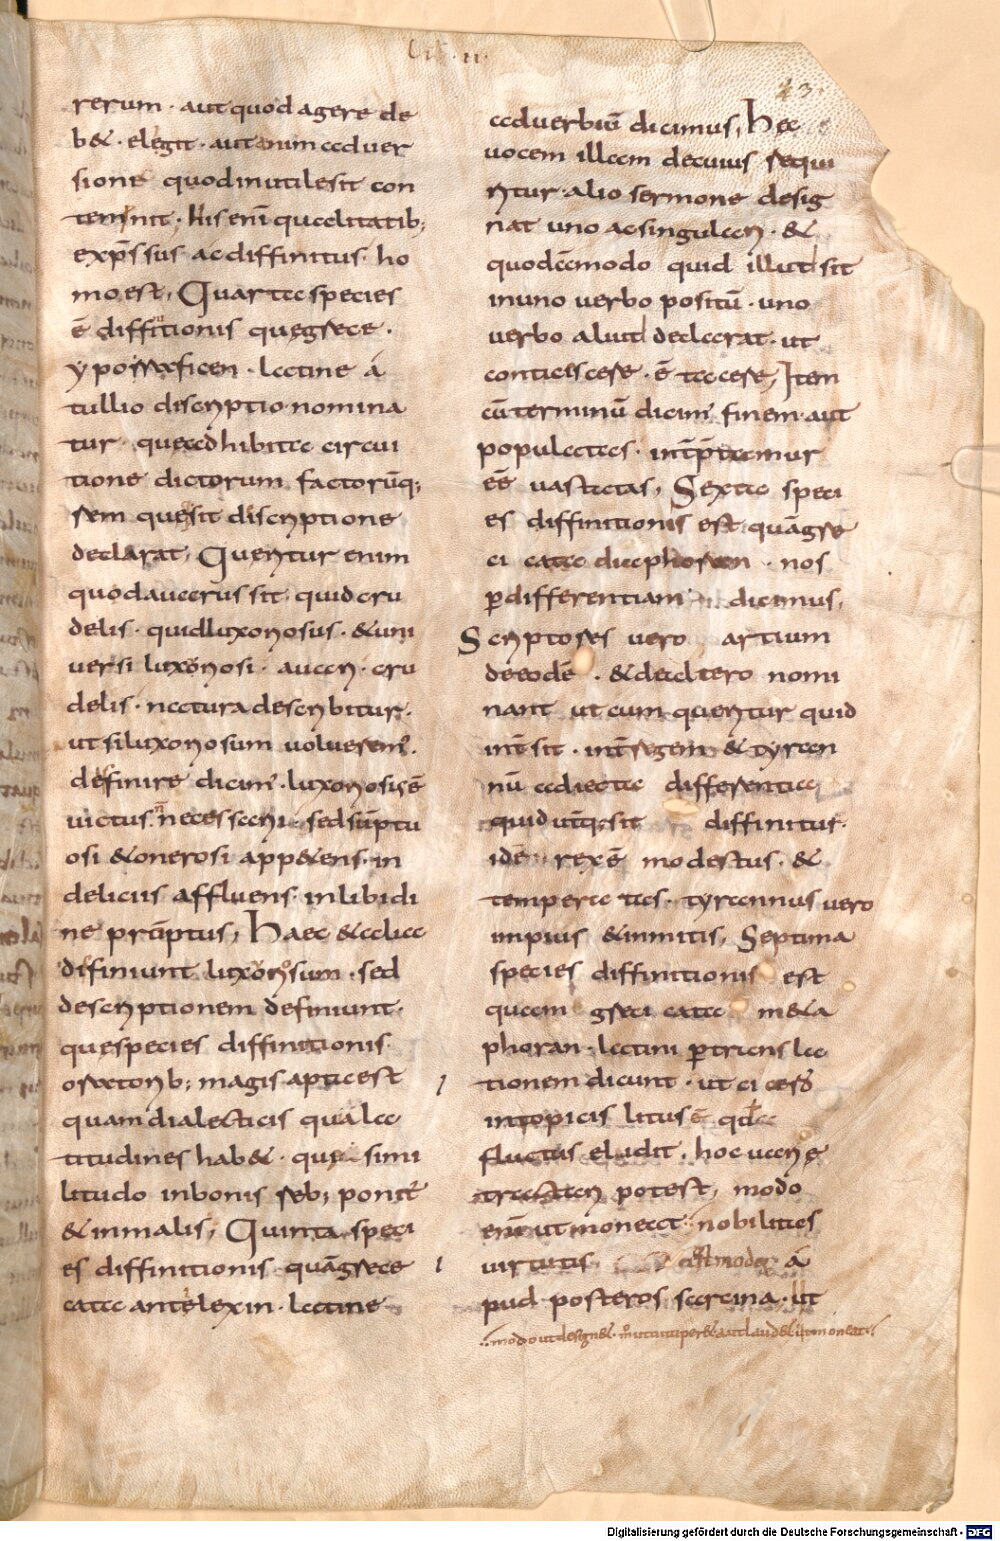 Lib · II ·
43·
rerum · aut quod agere de
b& · elegit · aut animaduer
sione quod inutile sit con
temnit · His eni qualitatib;
exp̄ssus ac diffinitus ho
mo est, Quarta species
ē diffinitionis quę gręce ·
ypografican · latine á
tullio discriptio nomina
tur · quae adhibita circui
tione dictorum factorūq;
rem que sit discriptione
declarat, Queritur enim
quod auarus sit quid cru
delis · quid luxoriosus · & uni
uersi luxoriosi · auari · cru
delis · natura describitur ·
ut si luxoriosum uoluerem ·
definire dicim · luxoriosus ē
uictus n̄ necessarii · sed sūptu
osi & onerosi app&ens · in
deliciis affluens · in libidi
ne prūptus, Haec & alia
difiniunt luxoriosum · sed
descriptionem definiunt ·
que species diffinitionis
oratorib; magis apta est
quam dialecticis quia la
titudines hab& · que simi
litudo in bonis reb; ponit
& in malis, Quinta speci
es diffinitionis quā gręce
cata antilexin · latine
aduerbiū dicimus, Hec
uocem illam de cuius requi
ritur alio sermone desig
nat uno ac singulari · &
quodāmodo quid illut sit
in uno uerbo positū · uno
uerbo aliut declarat · ut
conticiscere · ē tacere, Item
cū terminū dicim finem · aut
populatas · int̄p̄tamur
eē uastatas, Sexta speci
es diffinitionis est quā gre
ci cata diaphoran · nos
ꝑ differentiam dicimus,
Scriptores uero artium
de eodē · & de altero nomi
nant ut cum queritur quid
int̄ sit · int̄ regem & tyran
nū adiecta differentia
quid utq; sit diffinitur ·
idē rex ē modestus · &
temperatas · tyrannus uero
impius & inmitis, Septima
species diffinitionis est
quam greci cata m&a
phoran · latini ꝑ transla
tionem dicunt · ut cicero
in topicis litus ē qđ
fluctus eludit, hoc uarie
tractari potest, modo
eni ut moneat · nobilitas
uirtutis á
pud posteros sarcina · ut
modo ut design& · ut uituper& aut laud& ut moneat